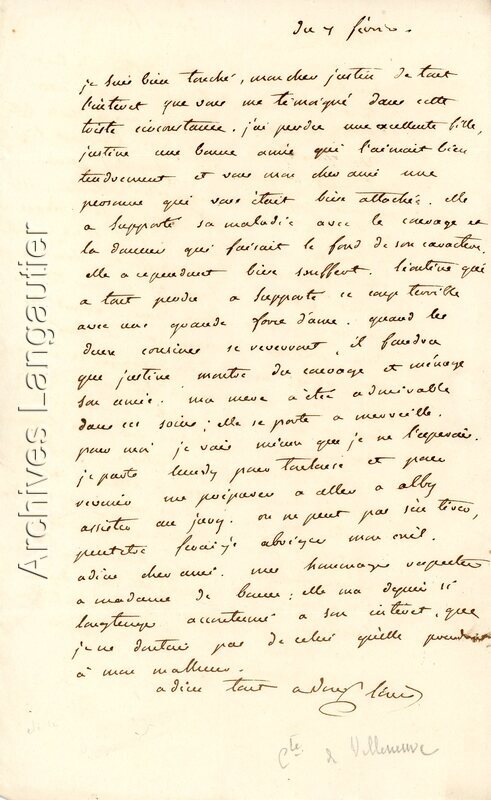 du 7 février.
je suis bien touché, mon cher justin de tout
l'interet que vous me témoigné dans cette
triste circonstance. j'ai perdu une excellente fille,
justine une bonne amie qui l'aimait bien
tendrement et vous mon cher ami une
personne qui vous était bien attachée. elle
a supporté sa maladie avec le courage et
la douceur qui faisait le fond de son caractère.
elle a cependant bien souffert. léontine qui
a tout perdu a supporté ce coup terrible
avec une grande force d'ame. quand les
deux cousines se reverront, il faudra
que justine montre du courage et ménage
son amie. ma mere a été admirable
dans ces soins; elle se porte a merveille.
pour moi je vais mieux que je ne l'esperais.
je parts lundy pour toulouse et pour
revenir me préparer a aller a alby
assister au jury. on ne peut pas s'en tirer,
peutetre ferai-je abréger mon exil.
adieu cher ami. mes hommages respectueux
a madame de ; elle m'a depuis si
longtemps accoutumé a son interet, que
je ne doutais pas de celui qu'elle prendrait
à mon malheur.
adieu tout a vous
Cte de Villeneuve
Archives Langautier